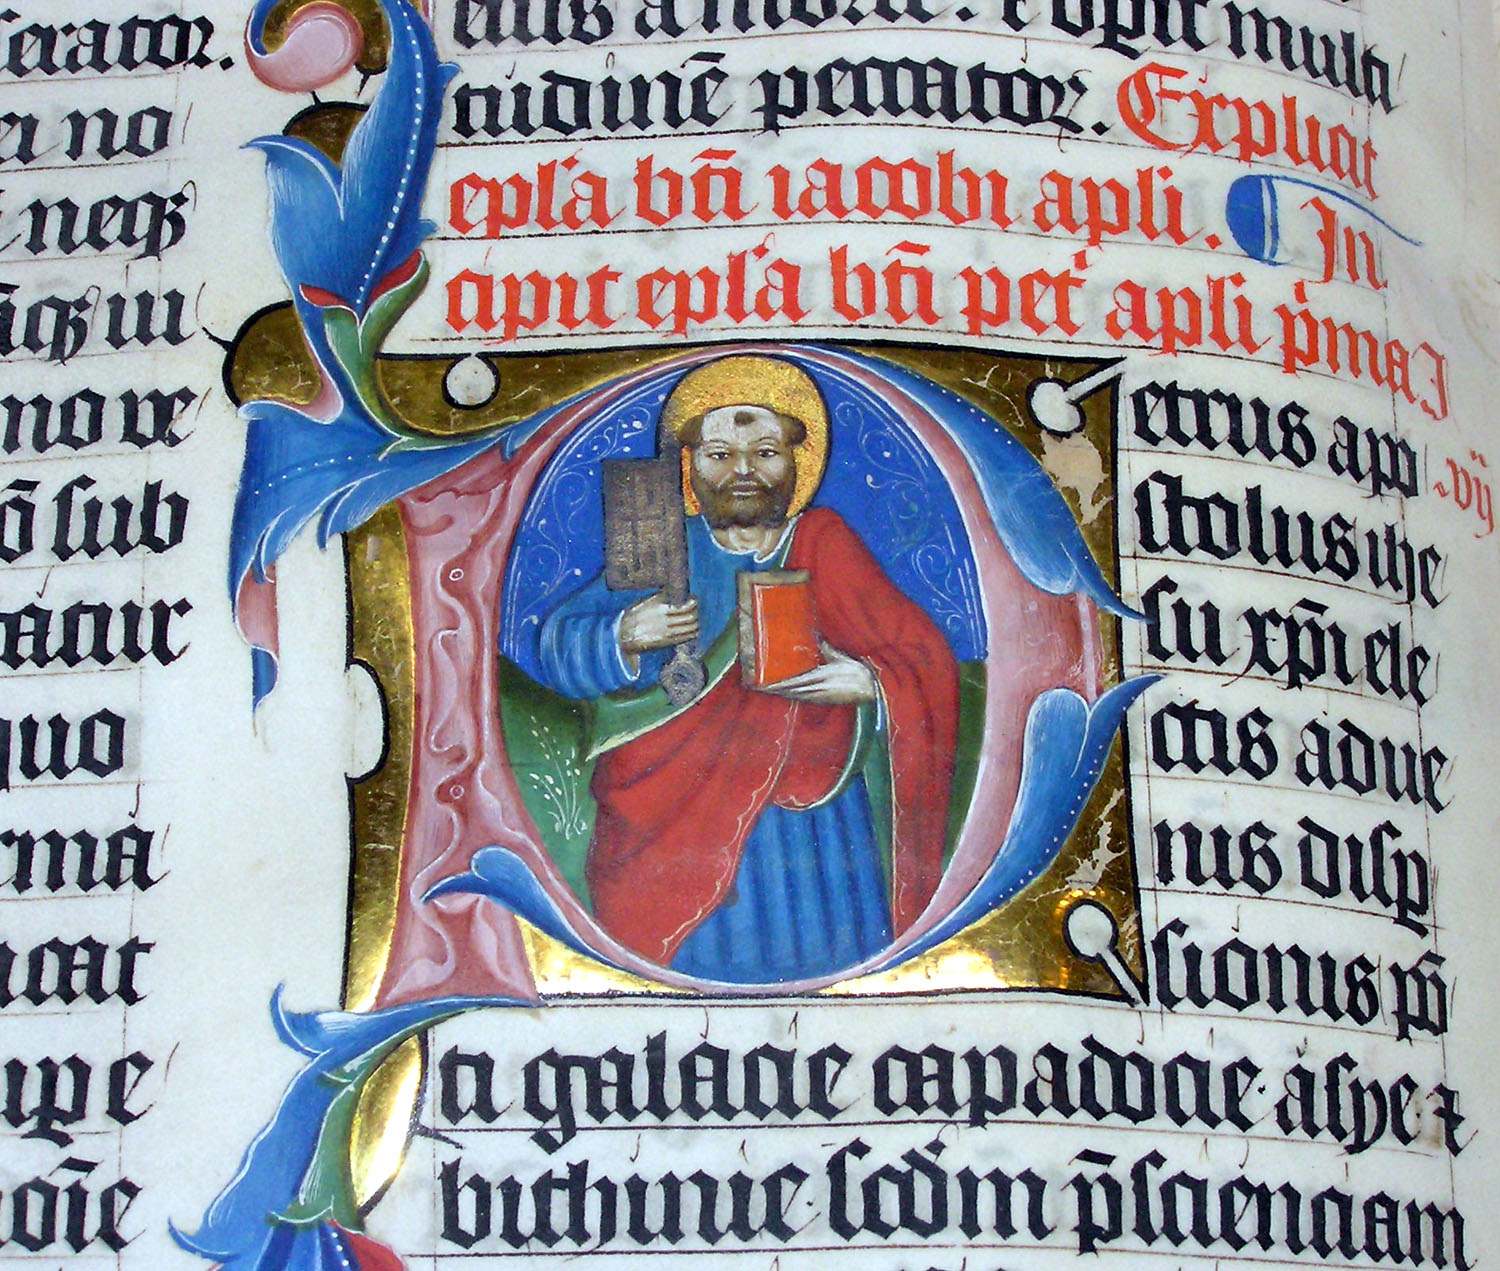 serator.
ei no
neqꝫ
āqꝫ iii
no ve
ō sub
tatur
quo
rma
icat
ripe
dōīe
enus a morte. et opit multi
tudinē peccator. Explicit
epl'a bt̄i iacobi apli. In
cipit epl'a bt̄i pet' apli p'ma I
etrus apo
vij
stolus ihe
su xp̄i ele
ctis adue
nis disp
sionis pō
ti galacie capadocie asye ⁊
bithinie scd'm p̄scienciam